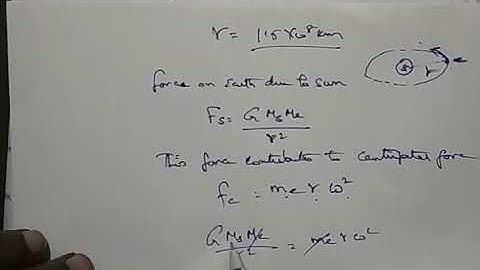 r = 1.5 x 10⁸ km
S r e
force on Earth due to sun
Fs = G Ms Me / r²
This force contributes to centripetal force
fc = me r ω²
G Ms Me / r² = me r ω²